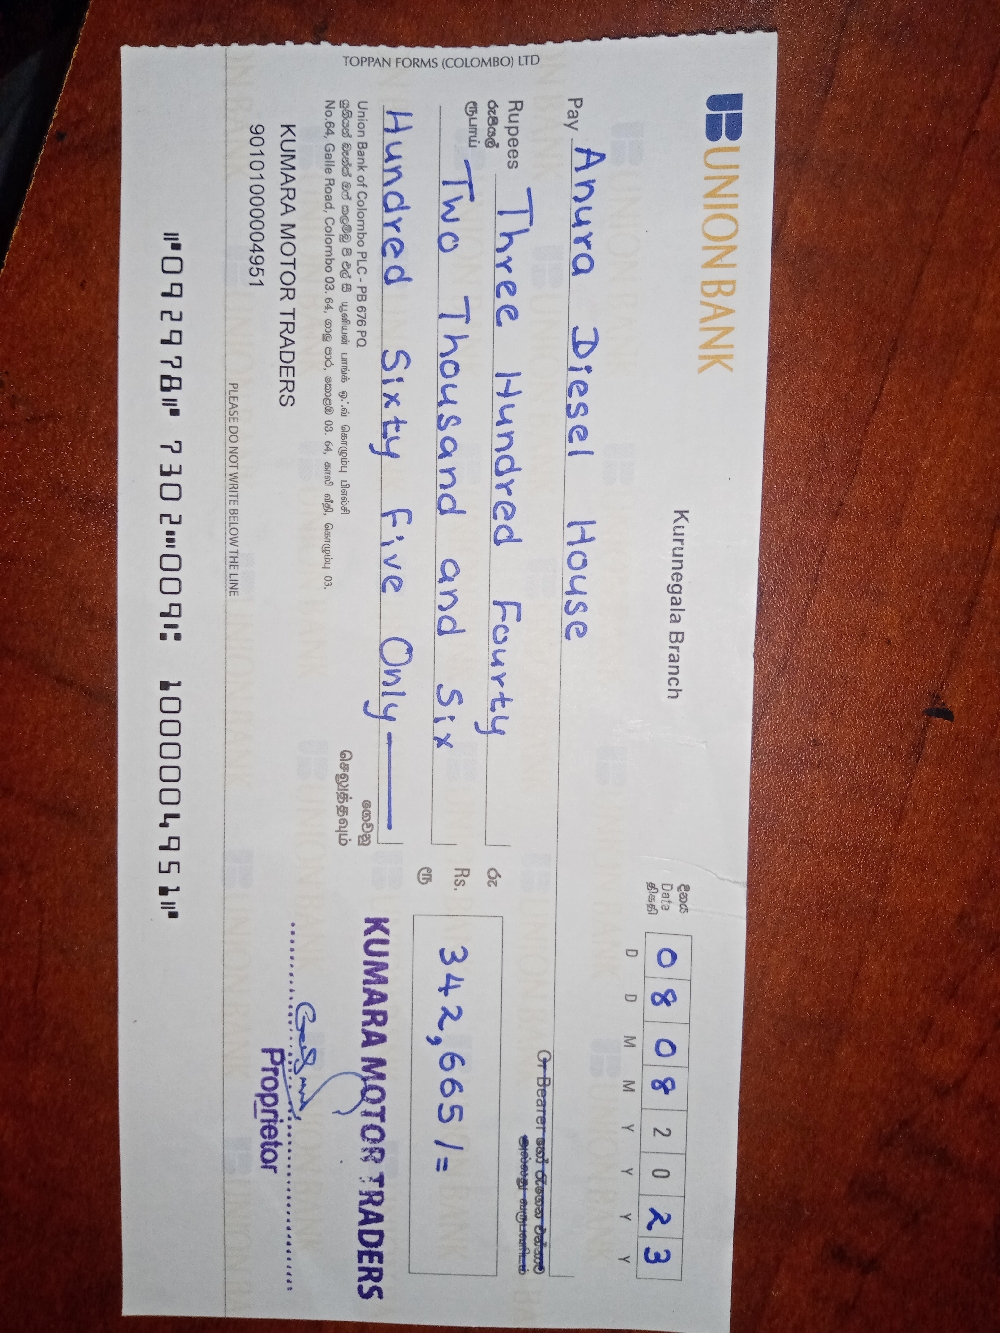 UNION BANK
Kurunegala Branch
දිනය
Date
திகதி
0 8 0 8 2 0 2 3
D D M M Y Y Y Y
Pay Anura Diesel House
Or Bearer
Rupees Three Hundred Fourty
රුපියල්
ரூபாய் Two Thousand and Six
Hundred Sixty Five Only
රු
Rs. 342,665/=
ரூ
ගෙවනු
செலுத்தவும்
Union Bank of Colombo PLC - PB 676 PQ
No.64, Galle Road, Colombo 03.
KUMARA MOTOR TRADERS
KUMARA MOTOR TRADERS
9010100004951
Proprietor
PLEASE DO NOT WRITE BELOW THE LINE
⑈092978⑈ 7302⑉009⑆ 1000004951⑈
TOPPAN FORMS (COLOMBO) LTD